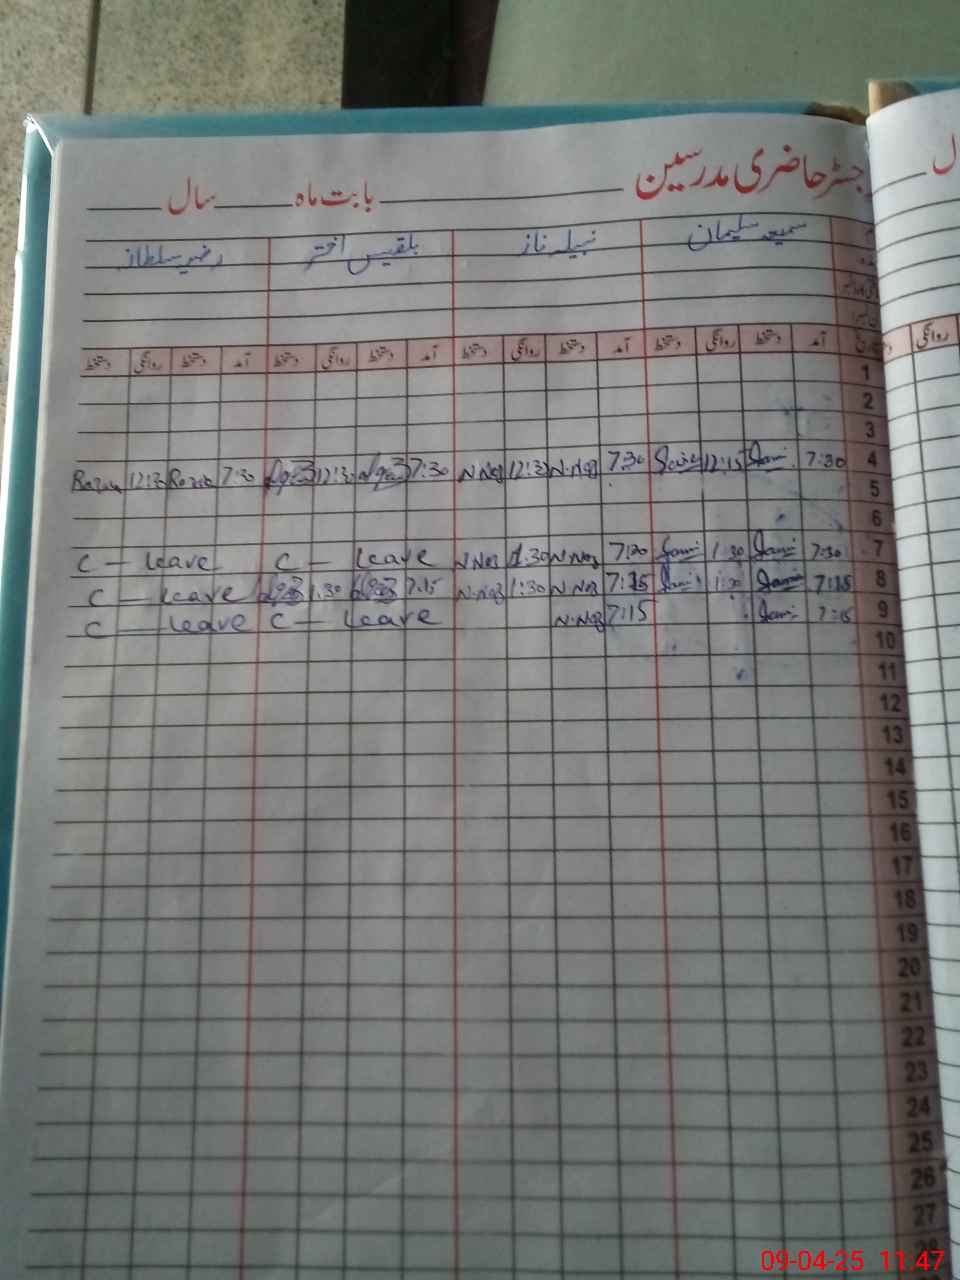 رجسٹر حاضری مدرسین ـــــ بابت ماہ ـــــ سال
سمیعہ سلیمان نبیلہ ناز بلقیس اختر رضیہ سلطانہ
آمد دستخط روانگی دستخط آمد دستخط روانگی دستخط آمد دستخط روانگی دستخط آمد دستخط روانگی دستخط
روانگی
1
2
3
Razia 12:30 Razia 7:30 12:30 7:30 N.Naz 12:30 N.Naz 7:30 12:15 Sami 7:30 4
5
6
C - leave C - leave N.Naz 1:30 N.Naz 7:20 Sami 1:30 Sami 7:30 7
C - leave 1:30 7:15 N.Naz 1:30 N.Naz 7:15 Sami 1:30 Sami 7:15 8
C - leave C - leave N.Naz 7:15 Sami 7:15 9
10
11
12
13
14
15
16
17
18
19
20
21
22
23
24
25
26
27
28
09-04-25 11:47